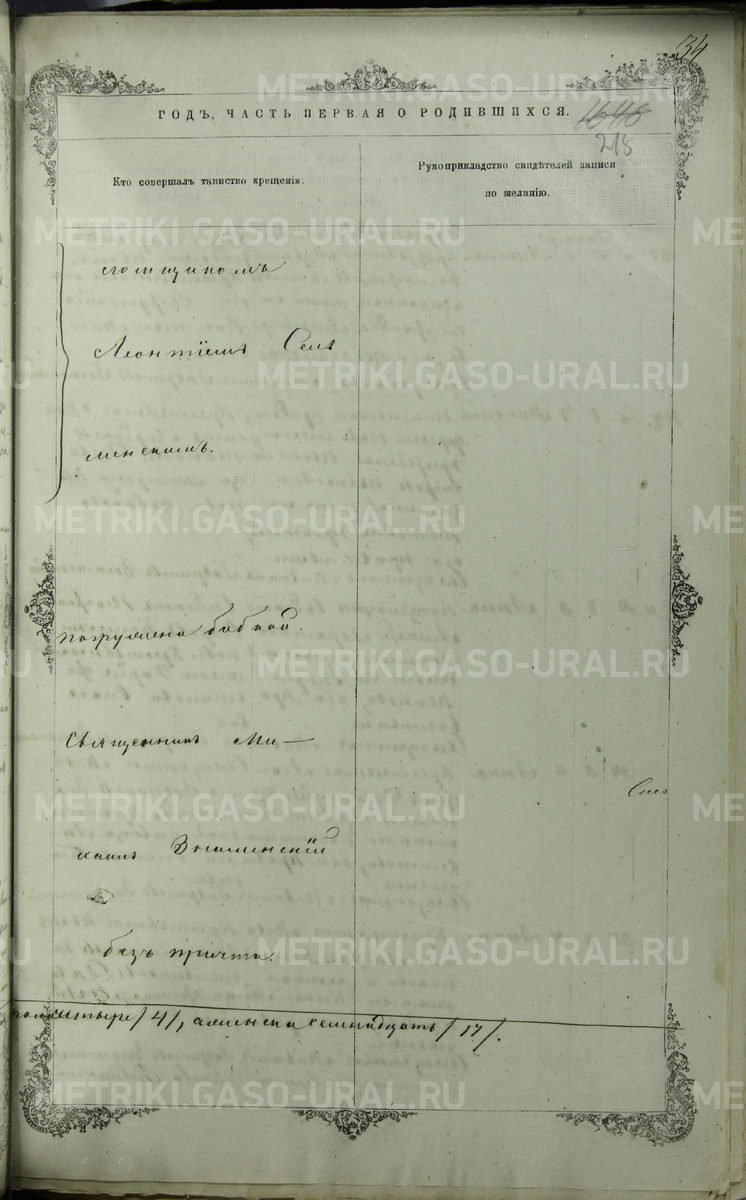 34
ГОДЪ, ЧАСТЬ ПЕРВАЯ О РОДИВШИХСЯ.
1646
215
Кто совершалъ таинство крещенія.
Рукоприкладство свидѣтелей записи
по желанію.
Леонтіемъ Селе
менскимъ.
погружена бабкой.
Священникъ Ми—
хаилъ Знаменскій
безъ причта.
четыре /4/, а женска семнадцать /17/.
METRIKI.GASO-URAL.RU